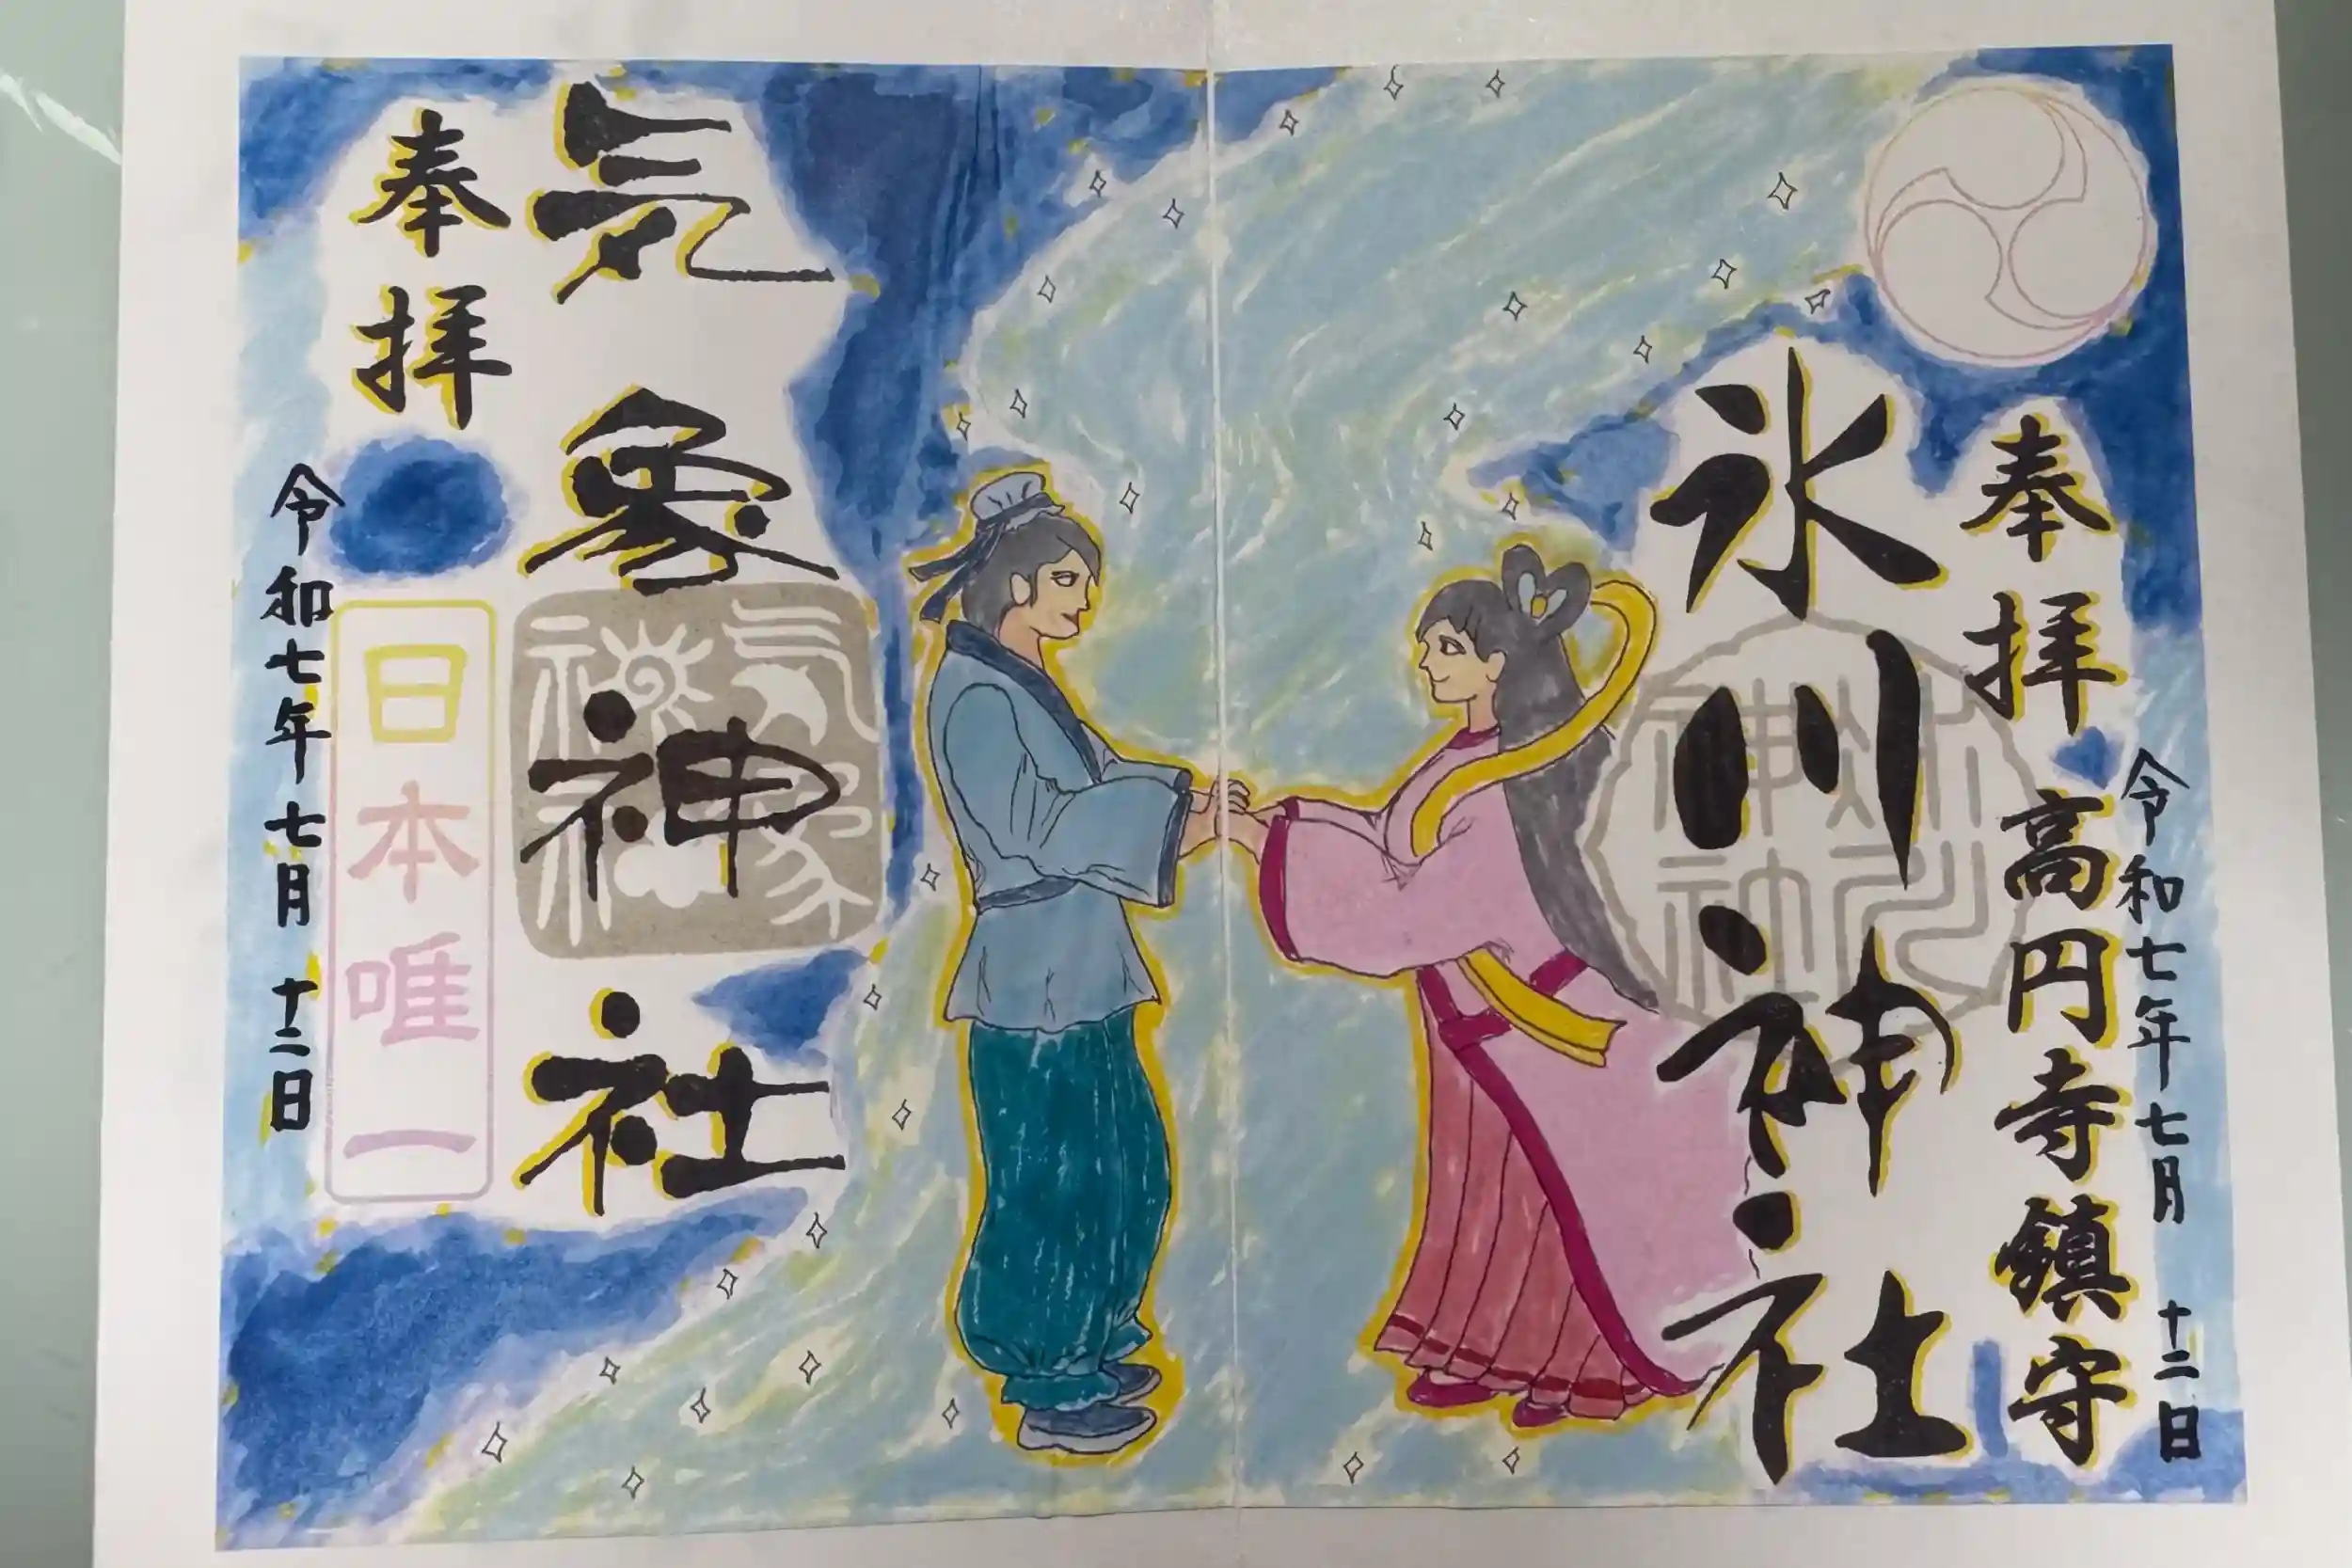 奉拝
高円寺鎮守
令和七年七月十二日
氷川神社
氷川神社
気象神社
気象神社
奉拝
日本唯一
令和七年七月十二日